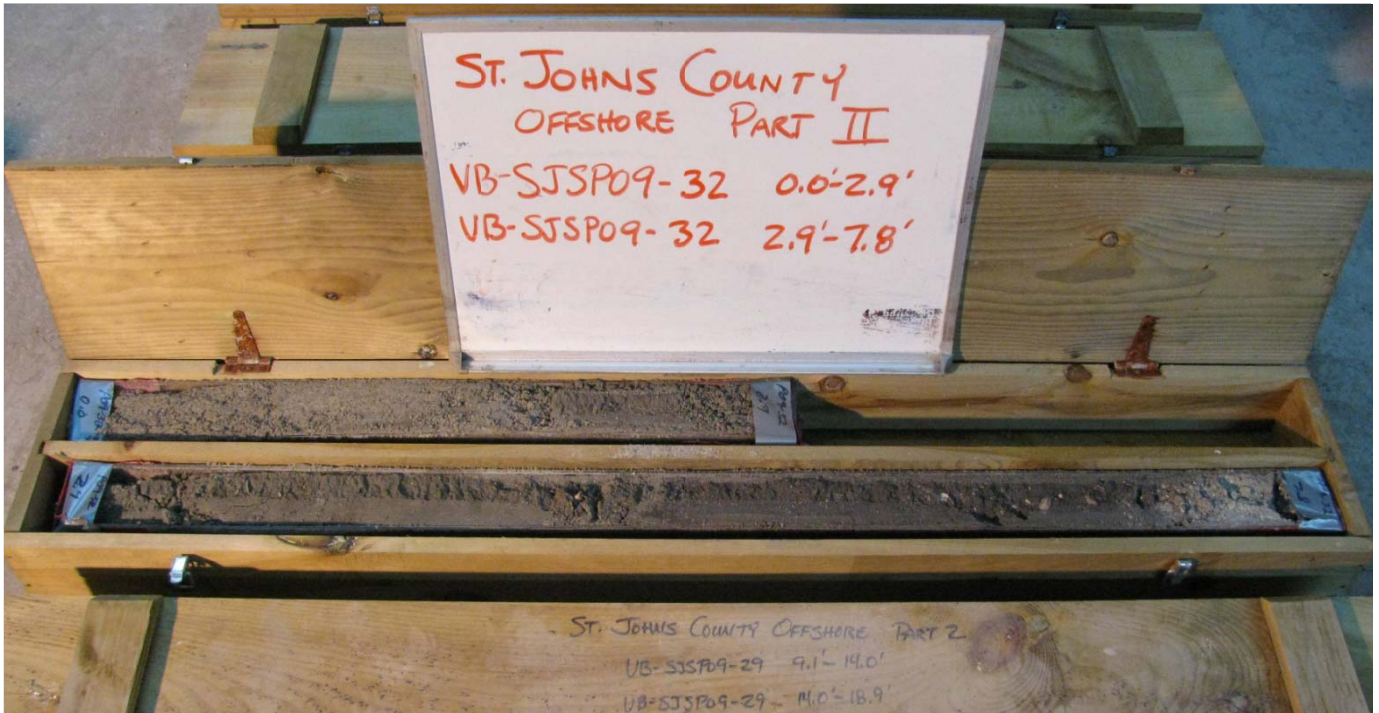 ST. JOHNS COUNTY
OFFSHORE PART II
VB-SJSP09-32 0.0'-2.9'
VB-SJSP09-32 2.9'-7.8'
0.0
2.9
2.9
ST. JOHNS COUNTY OFFSHORE PART 2
VB-SJSP09-29 9.1'-14.0'
VB-SJSP09-29 14.0'-18.9'